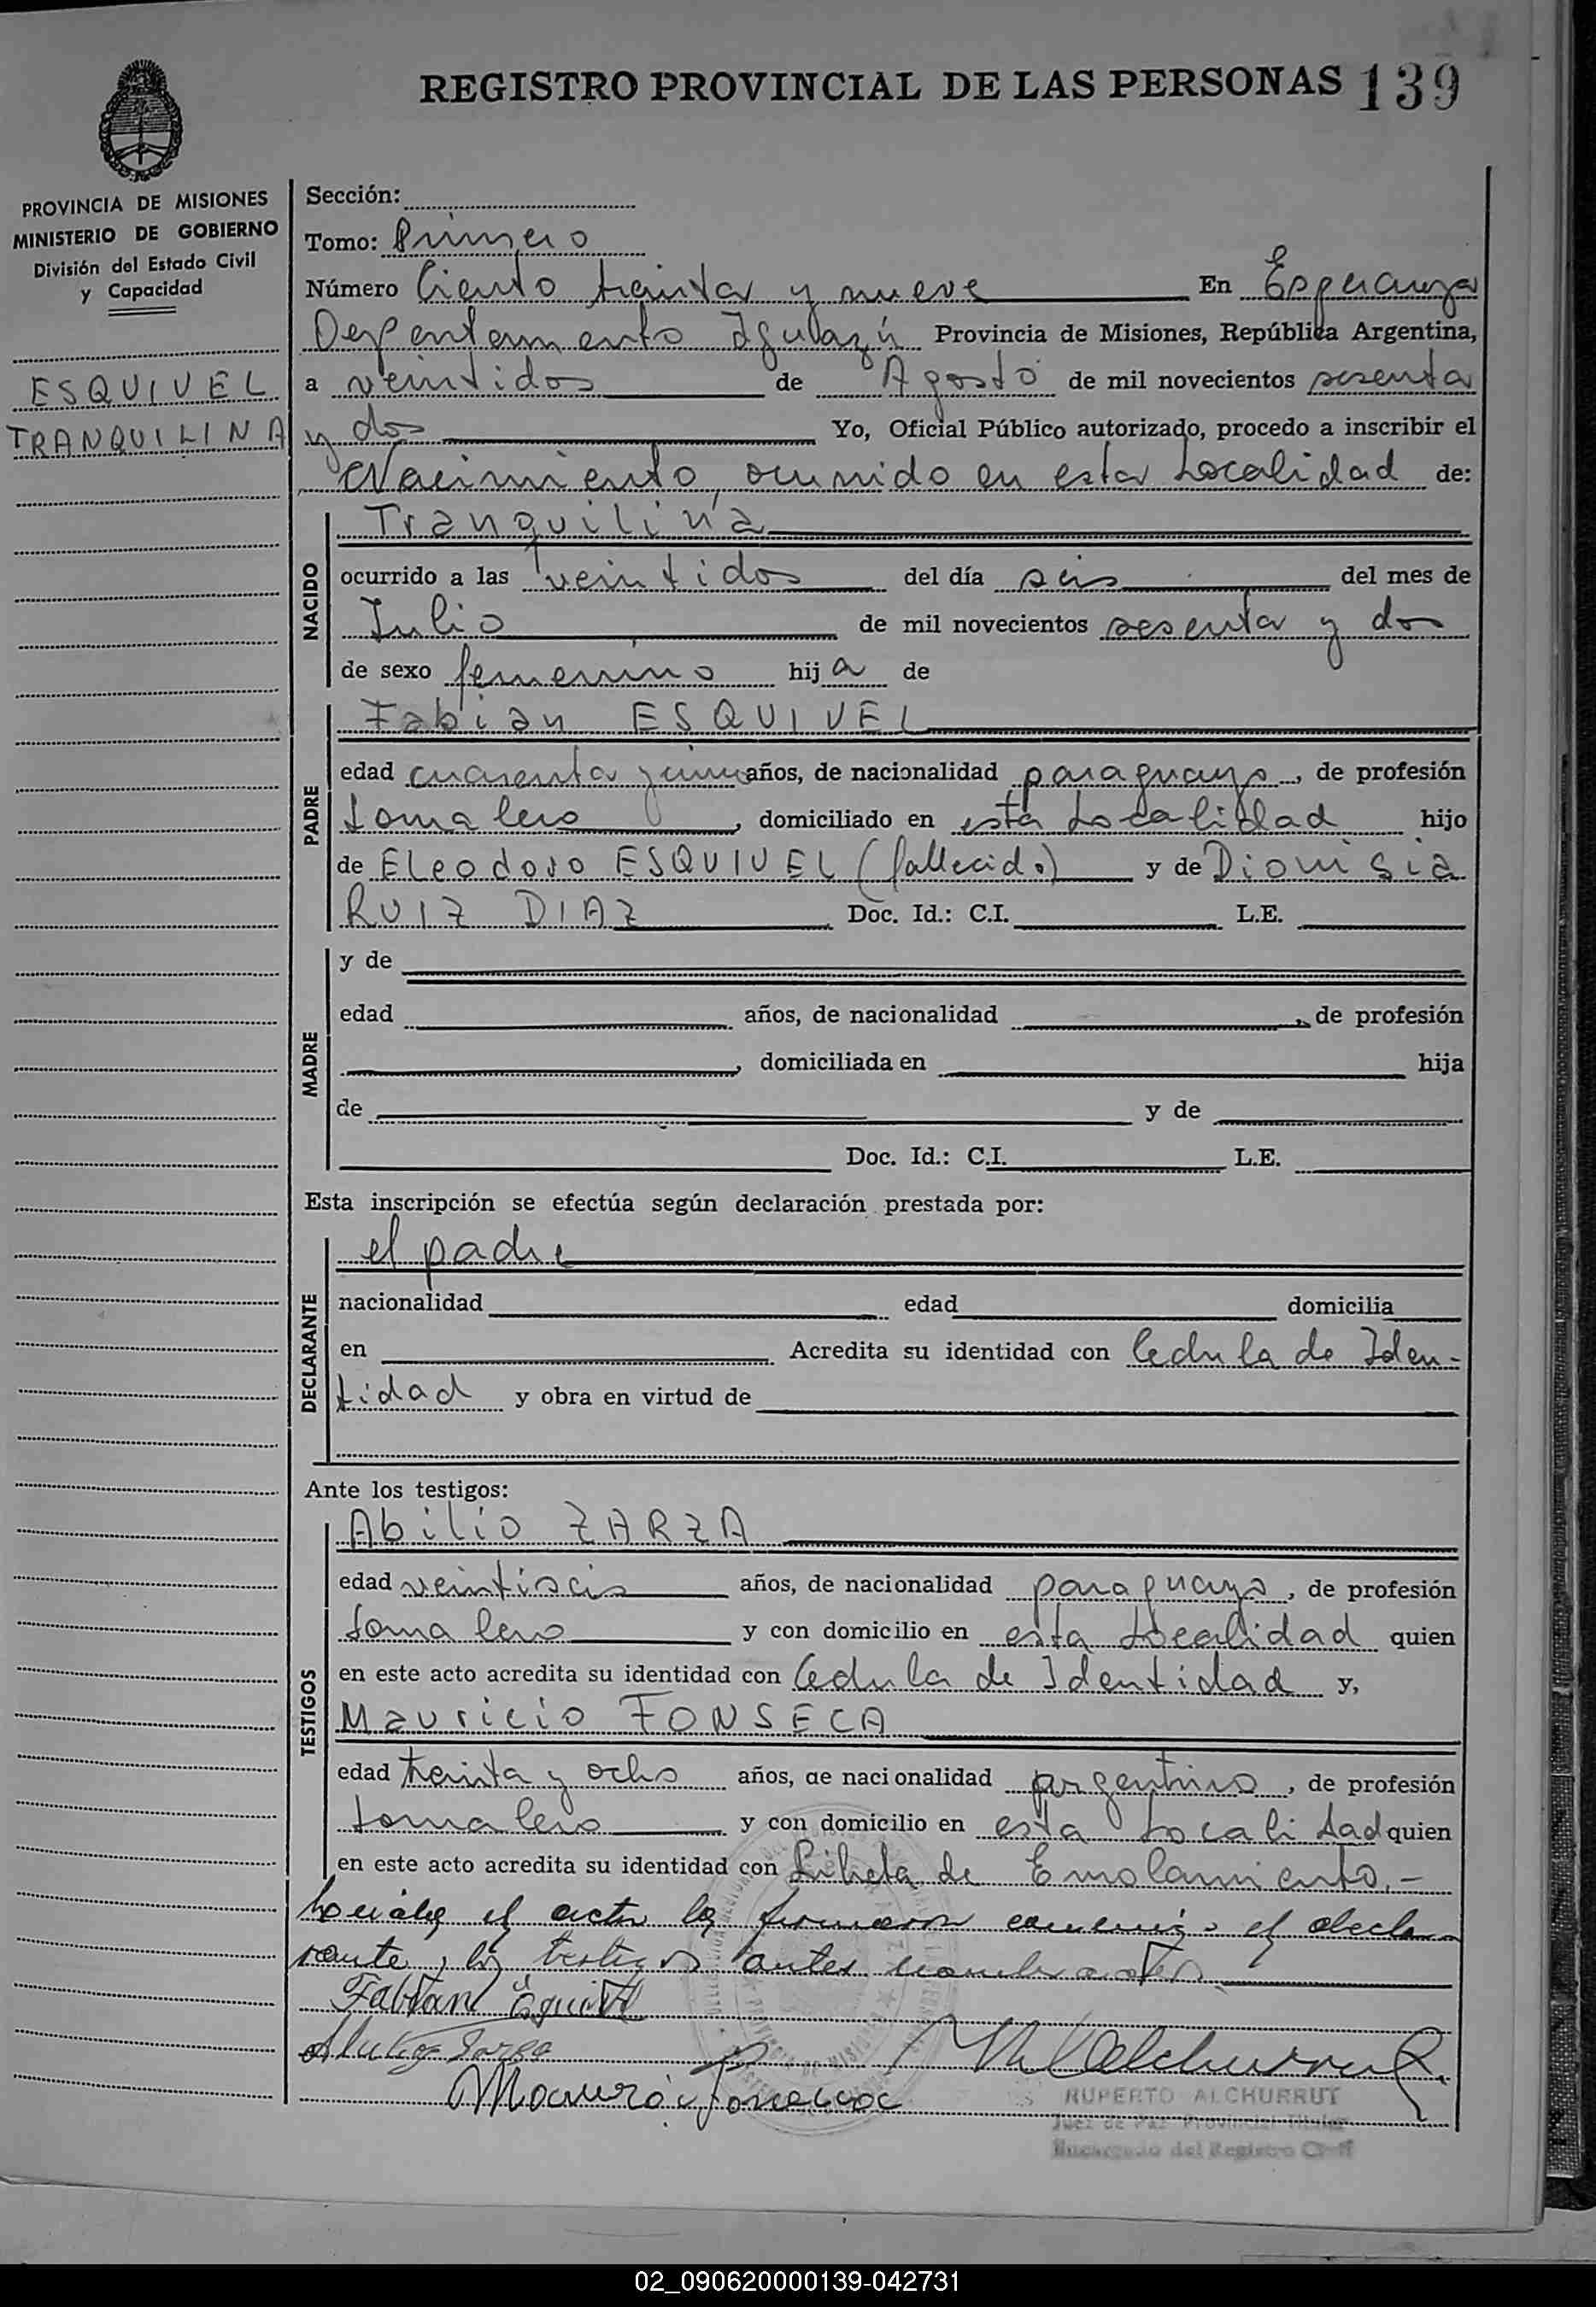 REGISTRO PROVINCIAL DE LAS PERSONAS 139
PROVINCIA DE MISIONES
MINISTERIO DE GOBIERNO
División del Estado Civil
y Capacidad
ESQUIVEL
TRANQUILINA
Sección:
Tomo: Primero
Número Ciento treinta y nueve En Esperanza
Departamento Iguazú Provincia de Misiones, República Argentina,
a veintidos de Agosto de mil novecientos sesenta
y dos Yo, Oficial Público autorizado, procedo a inscribir el
Nacimiento, ocurrido en esta Localidad de:
NACIDO
Tranquilina
ocurrido a las veintidos del día seis del mes de
Julio de mil novecientos sesenta y dos
de sexo femenino hija de
PADRE
Fabian ESQUIVEL
edad cuarenta y años, de nacionalidad paraguayo, de profesión
domiciliado en esta Localidad hijo
de Eleodoro ESQUIVEL (fallecido) y de Dionisia
RUIZ DIAZ Doc. Id.: C.I. L.E.
MADRE
y de
edad años, de nacionalidad , de profesión
, domiciliada en hija
de y de
Doc. Id.: C.I. L.E.
Esta inscripción se efectúa según declaración prestada por:
DECLARANTE
el padre
nacionalidad edad domicilia
en Acredita su identidad con Cedula de Iden-
tidad y obra en virtud de
Ante los testigos:
TESTIGOS
Abilio ZARZA
edad veintiseis años, de nacionalidad paraguaya, de profesión
y con domicilio en esta Localidad quien
en este acto acredita su identidad con Cedula de Identidad y,
Mauricio FONSECA
edad treinta y ocho años, de nacionalidad argentino, de profesión
y con domicilio en esta Localidad quien
en este acto acredita su identidad con Libreta de Enrolamiento.-
el acta la firmaron conmigo el decla
rante, los testigos antes nombrados
Fabian
RUPERTO ALCHURRUT
Juez de Paz Provincial Titular
Encargado del Registro Civil
02_090620000139-042731